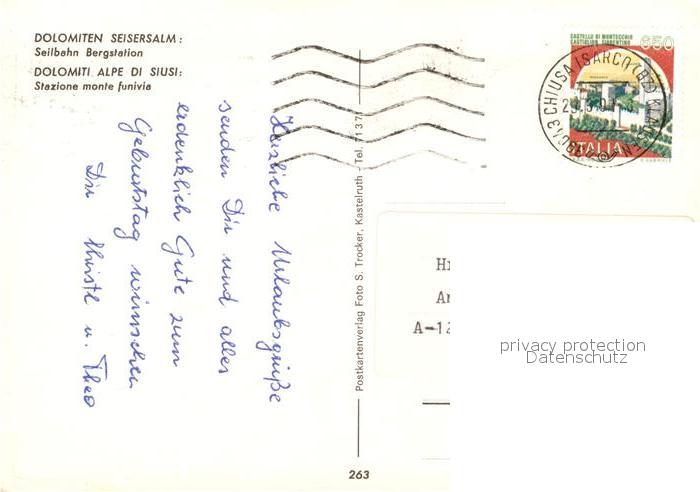 DOLOMITEN SEISERSALM:
Seilbahn Bergstation
DOLOMITI ALPE DI SIUSI:
Stazione monte funivia
Herzliche Urlaubsgrüße
senden Dir und alles
erdenklich Gute zum
Geburtstag wünschen
Dir Christl u. Theo
Postkartenverlag Foto S. Trocker, Kastelruth - Tel. 7137
263
CASTELLO DI MONTECCHIO
CASTIGLION FIORENTINO
650
ITALIA
39043 CHIUSA ISARCO (BZ) KLAUSEN
A-12
privacy protection
Datenschutz